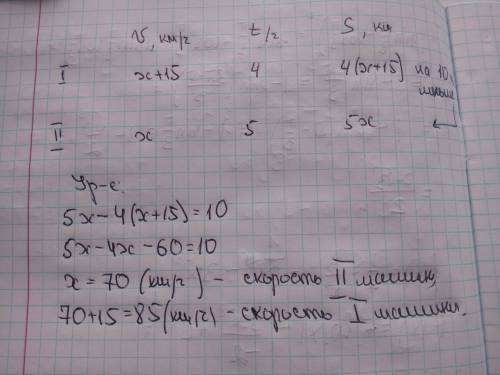 V, км/г t/г S, км
I x+15 4 4(x+15) на 10,
меньше
II x 5 5x
Ур-е.
5x-4(x+15)=10
5x-4x-60=10
x=70 (км/г) - скорость II машин,
70+15=85(км/г) - скорость I машины.